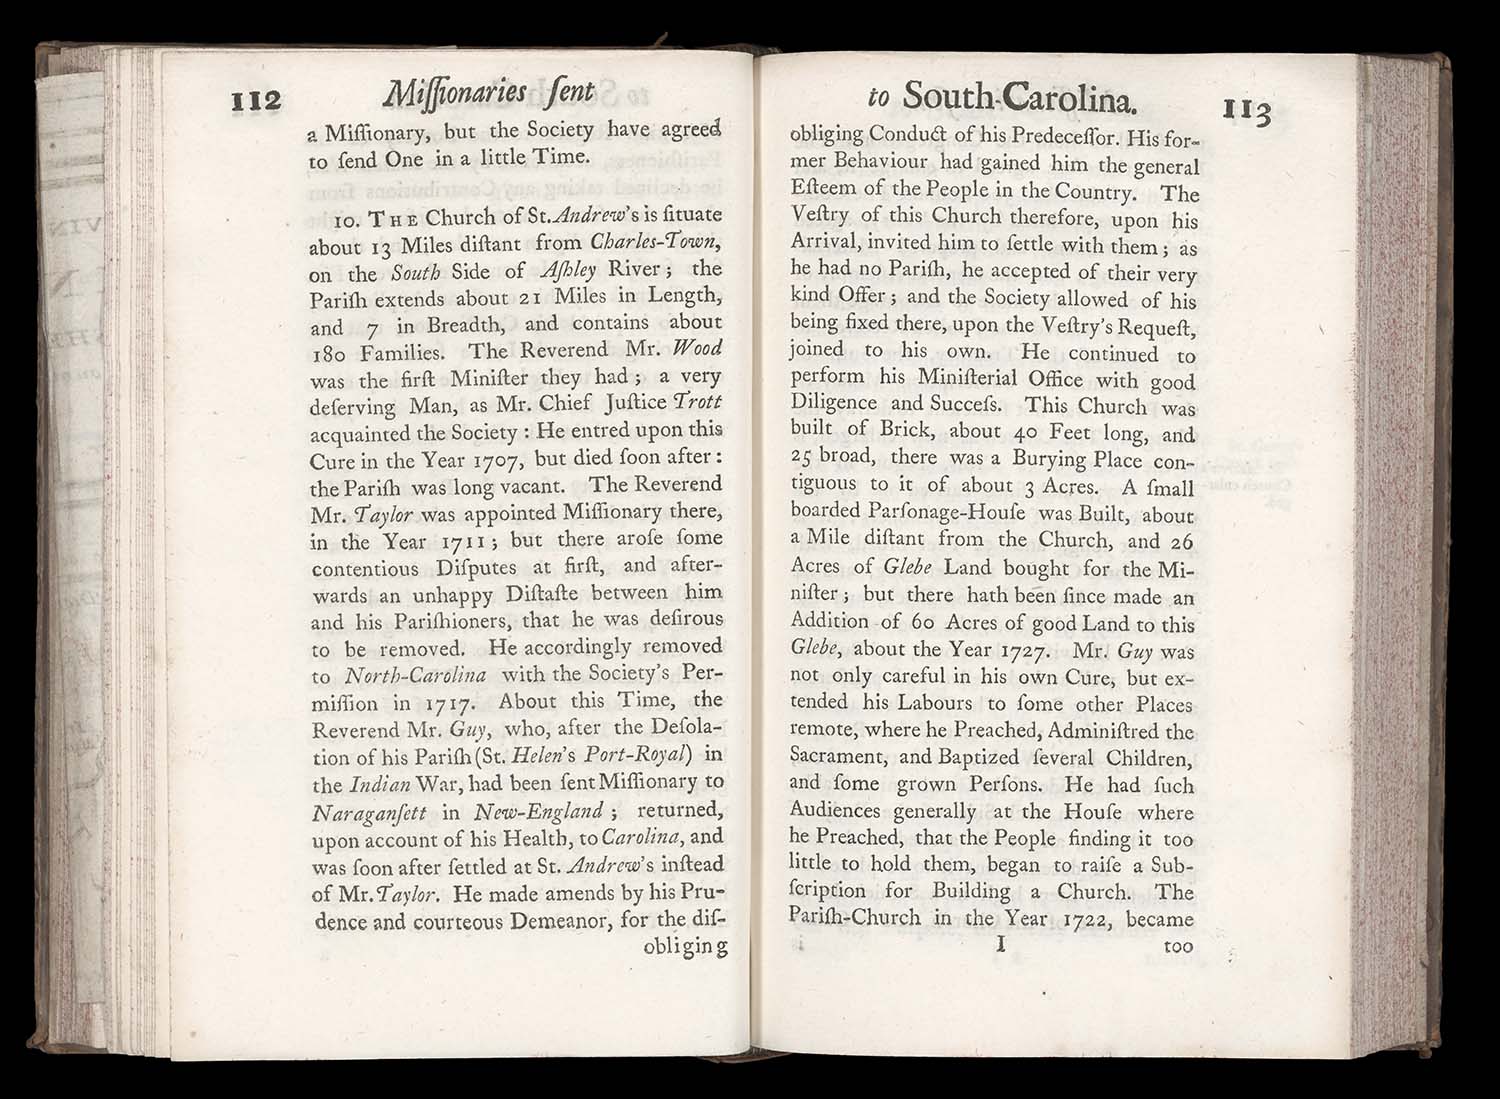 112
Miſſionaries ſent
a Miſſionary, but the Society have agreed
to ſend One in a little Time.
10. THE Church of St. Andrew's is ſituate
about 13 Miles diſtant from Charles-Town,
on the South Side of Aſhley River; the
Pariſh extends about 21 Miles in Length,
and 7 in Breadth, and contains about
180 Families. The Reverend Mr. Wood
was the firſt Miniſter they had; a very
deſerving Man, as Mr. Chief Juſtice Trott
acquainted the Society: He entred upon this
Cure in the Year 1707, but died ſoon after:
the Pariſh was long vacant. The Reverend
Mr. Taylor was appointed Miſſionary there,
in the Year 1711; but there aroſe ſome
contentious Diſputes at firſt, and after-
wards an unhappy Diſtaſte between him
and his Pariſhioners, that he was deſirous
to be removed. He accordingly removed
to North-Carolina with the Society's Per-
miſſion in 1717. About this Time, the
Reverend Mr. Guy, who, after the Deſola-
tion of his Pariſh (St. Helen's Port-Royal) in
the Indian War, had been ſent Miſſionary to
Naraganſett in New-England; returned,
upon account of his Health, to Carolina, and
was ſoon after ſettled at St. Andrew's inſtead
of Mr. Taylor. He made amends by his Pru-
dence and courteous Demeanor, for the diſ-
obliging
to South-Carolina.
113
obliging Conduct of his Predeceſſor. His for-
mer Behaviour had gained him the general
Eſteem of the People in the Country. The
Veſtry of this Church therefore, upon his
Arrival, invited him to ſettle with them; as
he had no Pariſh, he accepted of their very
kind Offer; and the Society allowed of his
being fixed there, upon the Veſtry's Requeſt,
joined to his own. He continued to
perform his Miniſterial Office with good
Diligence and Succeſs. This Church was
built of Brick, about 40 Feet long, and
25 broad, there was a Burying Place con-
tiguous to it of about 3 Acres. A ſmall
boarded Parſonage-Houſe was Built, about
a Mile diſtant from the Church, and 26
Acres of Glebe Land bought for the Mi-
niſter; but there hath been ſince made an
Addition of 60 Acres of good Land to this
Glebe, about the Year 1727. Mr. Guy was
not only careful in his own Cure, but ex-
tended his Labours to ſome other Places
remote, where he Preached, Adminiſtred the
Sacrament, and Baptized ſeveral Children,
and ſome grown Perſons. He had ſuch
Audiences generally at the Houſe where
he Preached, that the People finding it too
little to hold them, began to raiſe a Sub-
ſcription for Building a Church. The
Pariſh-Church in the Year 1722, became
I too